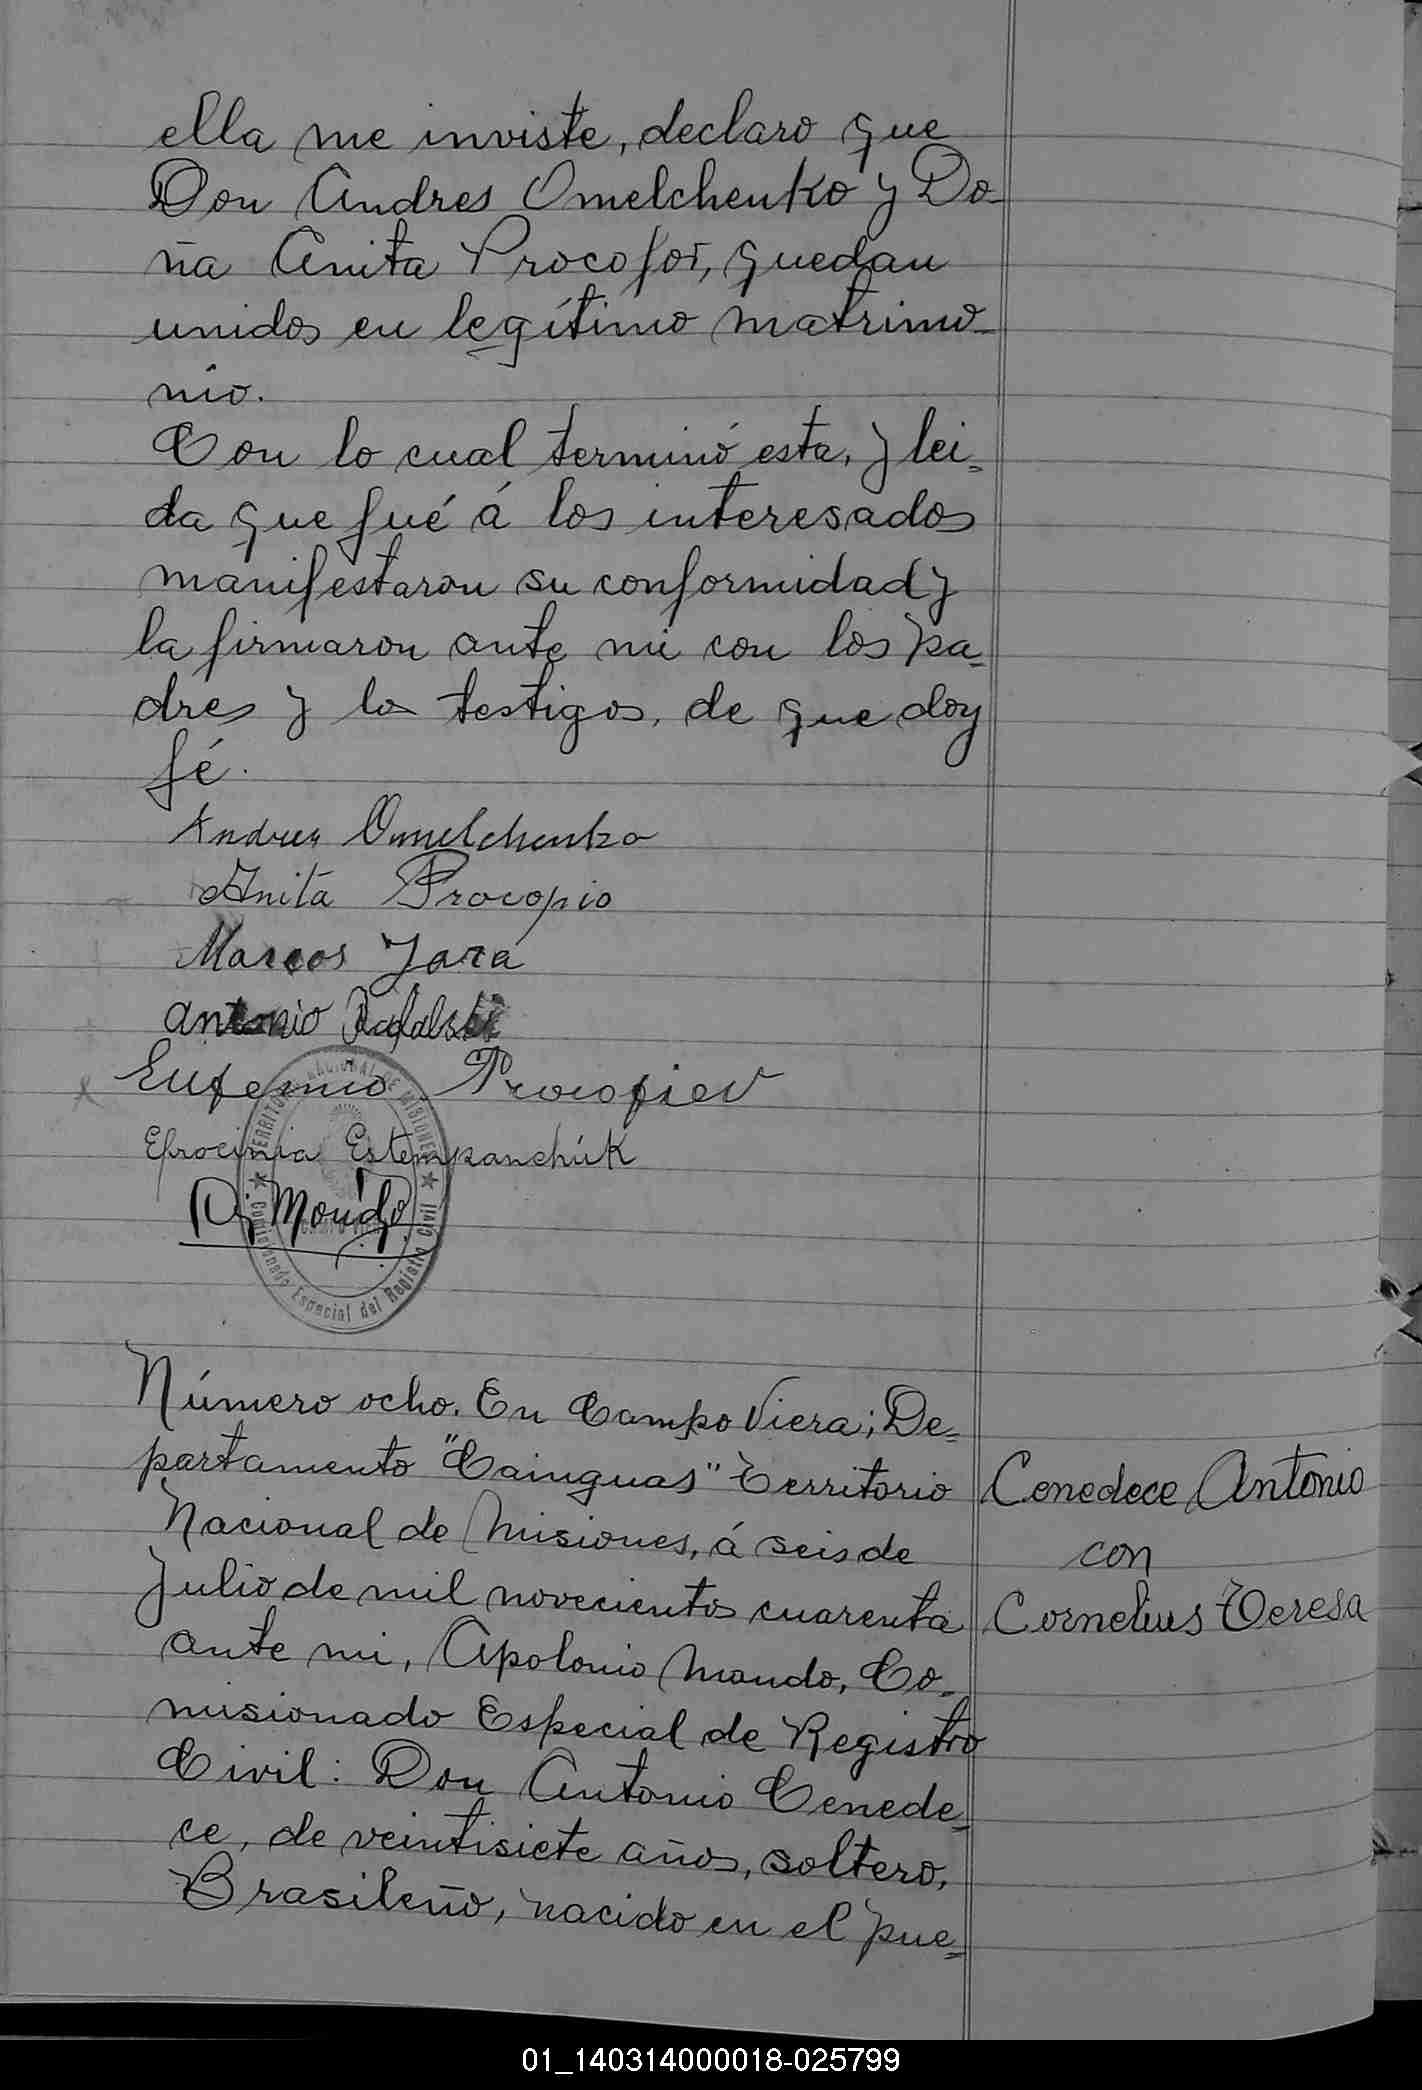 ella me inviste, declaro que
Don Andres Omelchenko y Do-
ña Anita Procofoi, quedan
unidos en legítimo matrimo-
nio.
Con lo cual terminó esta, y lei=
da que fué á los interesados
manifestaron su conformidad y
la firmaron ante mi con los pa=
dres y los testigos, de que doy
fé.
Andres Omelchenko
Anita Procopio
Marcos Jara
Antonio Rafalski
Eufemio Procofiev
Efrocinia Estempanchúk
A. Mondo
TERRITORIO NACIONAL DE MISIONES
Comisionado Especial del Registro Civil
Número ocho. En Campo Viera; De=
partamento "Cainguas" Territorio
Nacional de Misiones, á seis de
Julio de mil novecientos cuarenta
ante mi, Apolonio Mondo, Co-
misionado Especial de Registro
Civil: Don Antonio Cenede=
ce, de veintisiete años, soltero,
Brasileño, nacido en el pue=
Cenedece Antonio
con
Cornelius Teresa
01_140314000018-025799